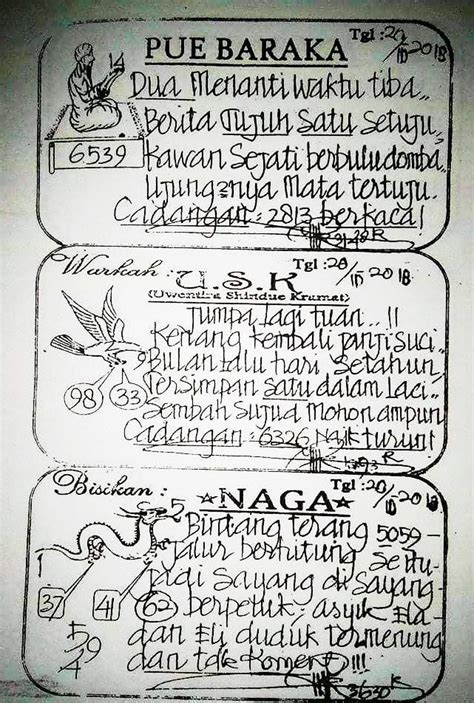 PUE BARAKA
Tgl : 20/10-2018
Dua Menanti Waktu tiba..
Berita Tujuh Satu Setuju..
6539
Kawan Sejati berbulu domba
Ujungnya Mata tertuju.
Cadangan : 2813 berkaca!
Warkah : U.S.K
Tgl : 20/10-2018
(Uwentira Shindue Kramat)
Jumpa lagi tuan..!!
Kenang kembali janji suci..
Bulan lalu hari Setahun,
98 33
Tersimpan satu dalam Laci..
Sembah Sujud Mohon ampun
Cadangan : 6326 Naik turun!
R
Bisikan : NAGA
Tgl : 20/10-2018
5
Bintang terang 5059 -
Jalur berhitung Seitu-
1
Jadi Sayang di Sayang-
37 41 62 berpeluk : asyik Ela-
dan Eli duduk termenung
594
dan tdk Koment !!!
3630 R